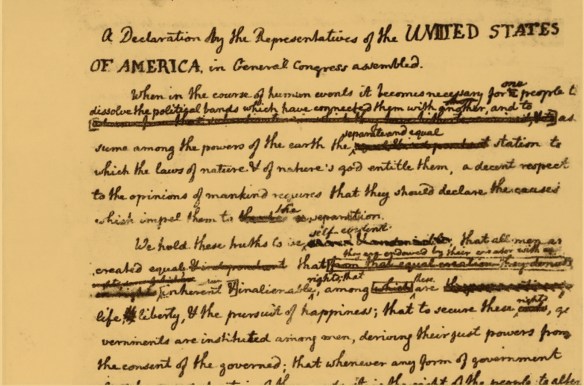 A Declaration by the Representatives of the UNITED STATES
OF AMERICA, in General Congress assembled.
When in the course of human events it becomes necessary for one people to
dissolve the political bands which have connected them with another, and to as
sume among the powers of the earth the separate and equal station to
which the laws of nature & of nature's god entitle them, a decent respect
to the opinions of mankind requires that they should declare the causes
which impel them to the separation.
We hold these truths to be self evident, that all men are
created equal & independent that they are endowed by their creator with
from that equal creation they
rights; that
inherent & inalienable, among which these are
life & liberty, & the pursuit of happiness; that to secure these rights, go
vernments are instituted among men, deriving their just powers from
the consent of the governed; that whenever any form of government
it is the right of the people to alter